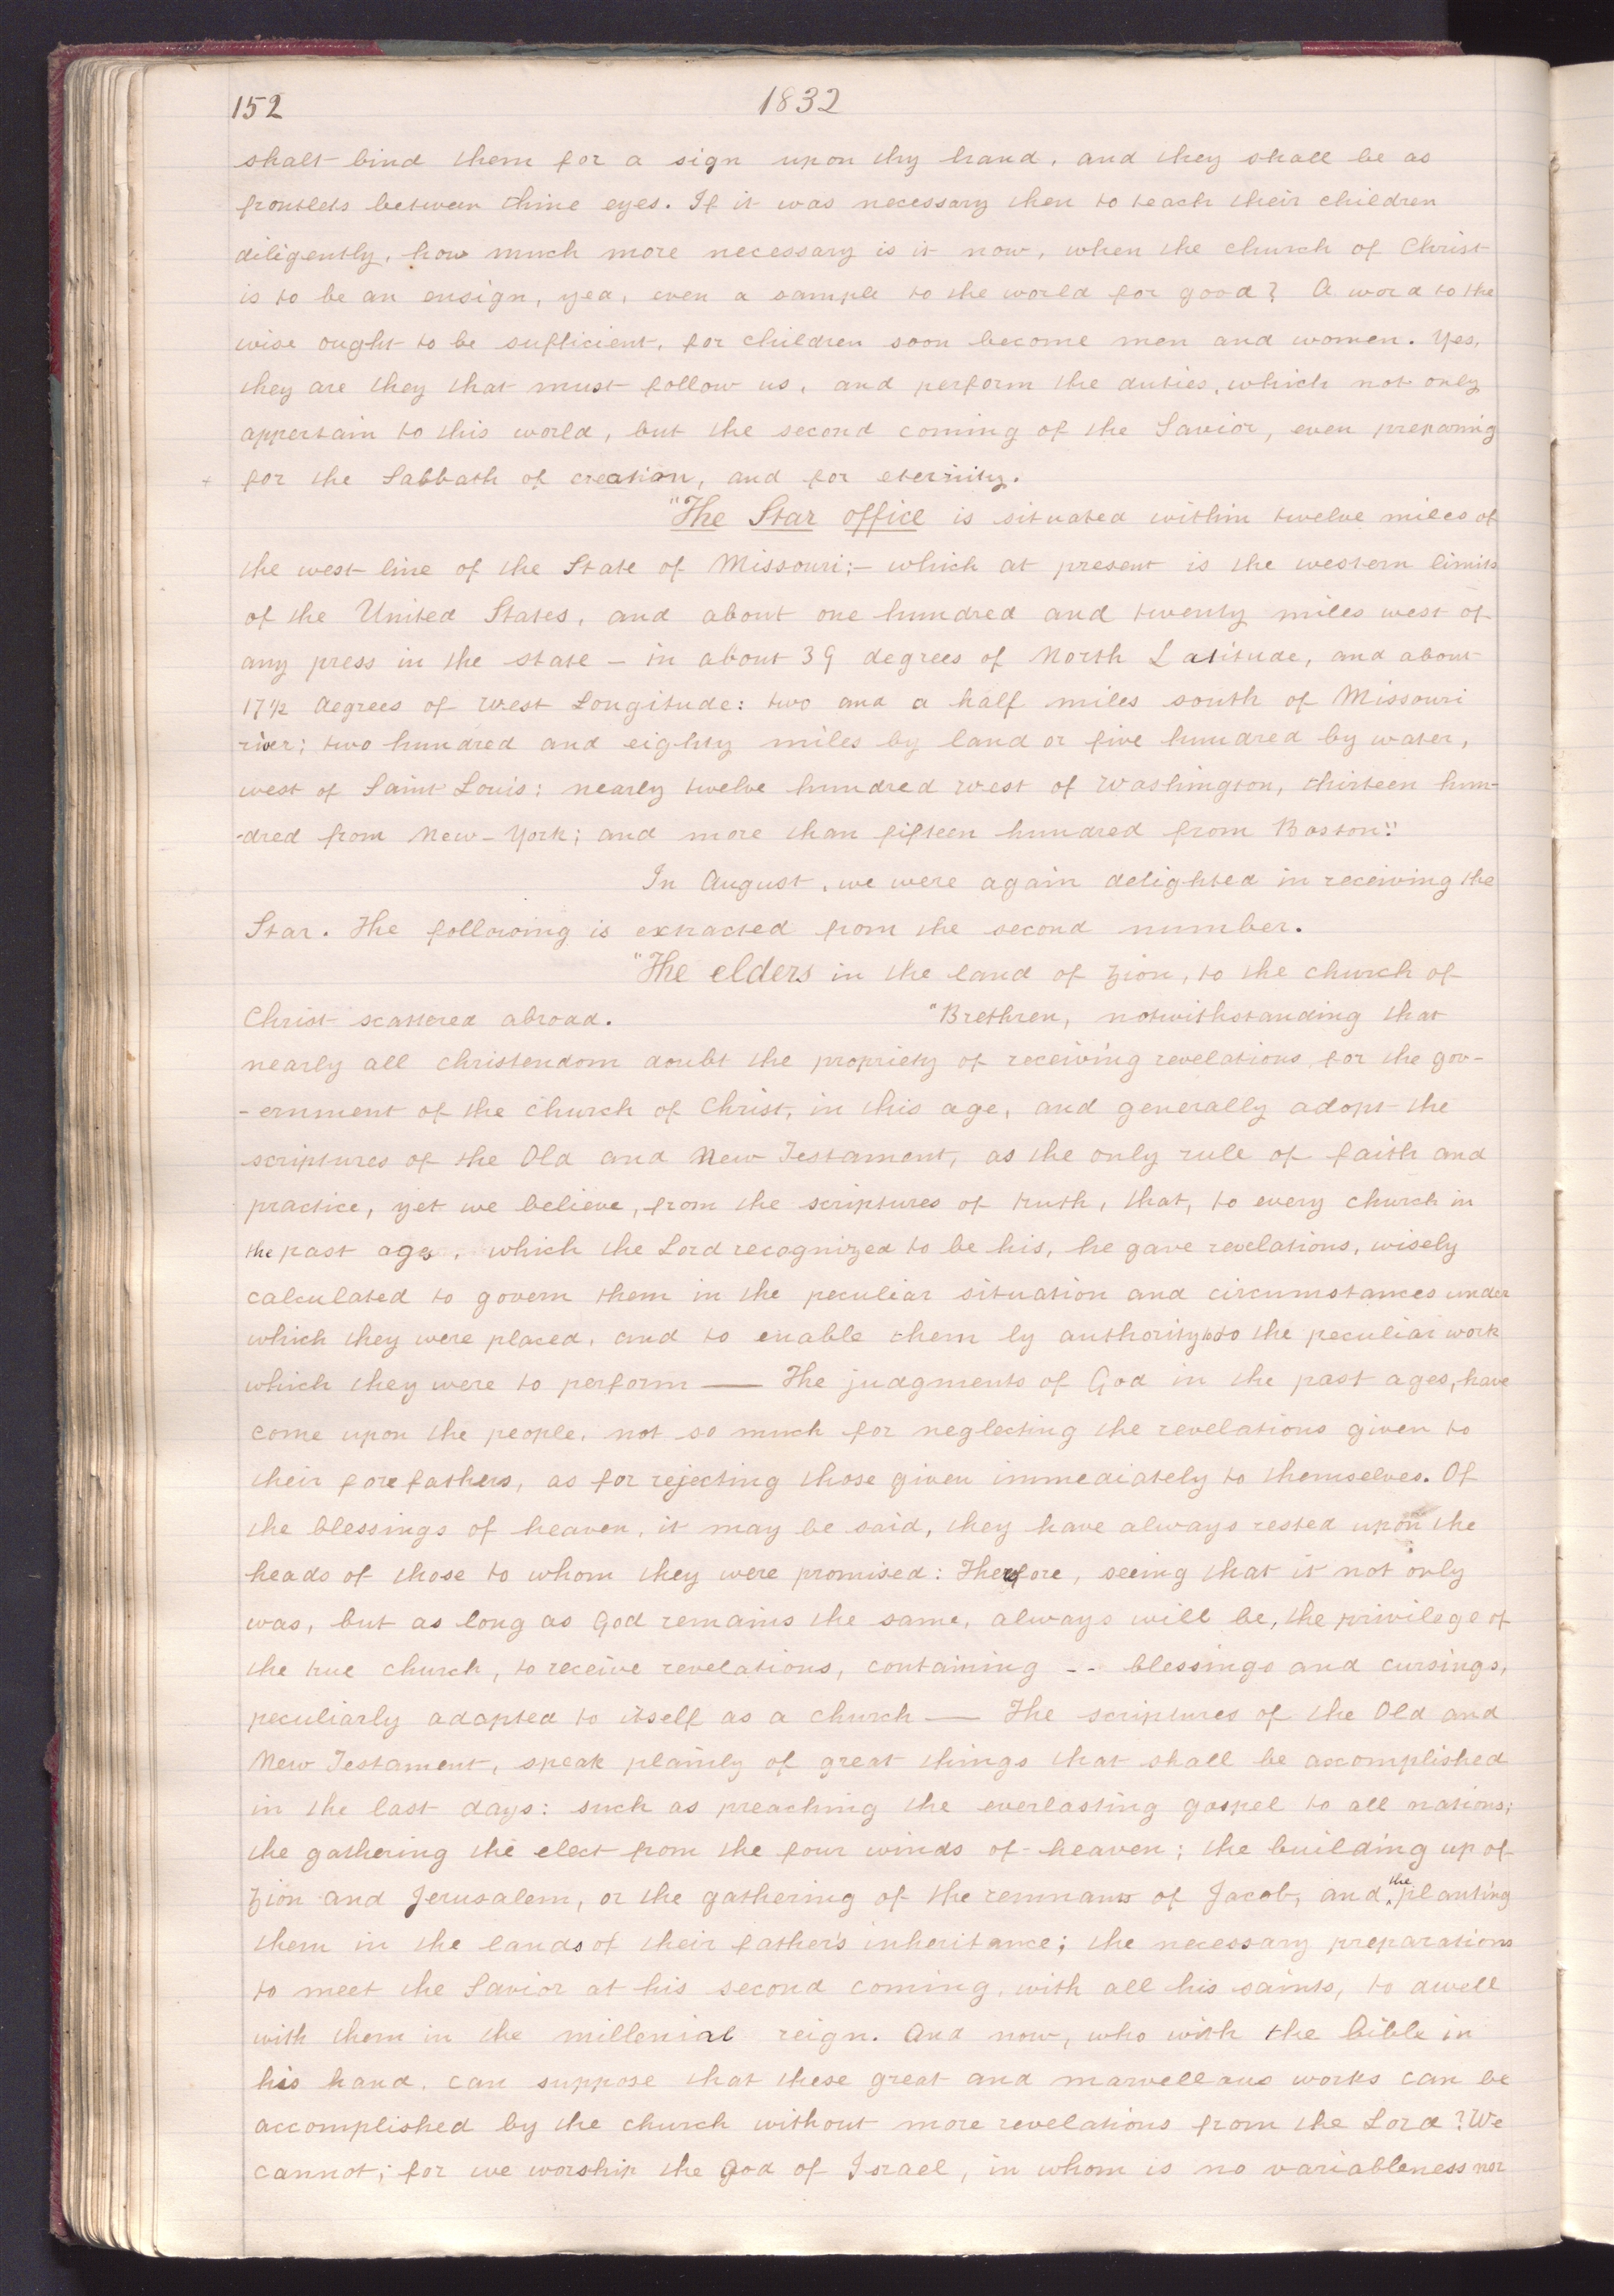 152 1832
shalt bind them for a sign upon thy hand, and they shall be as
frontlets between thine eyes. If it was necessary then to teach their children
diligently, how much more necessary is it now, when the church of Christ
is to be an ensign, yea, even a sample to the world for good? A word to the
wise ought to be sufficient, for children soon become men and women. Yes,
they are they that must follow us, and perform the duties, which not only
appertain to this world, but the second coming of the Savior, even preparing
+ for the Sabbath of creation, and for eternity.
"The Star office is situated within twelve miles of
the west line of the State of Missouri;— which at present is the western limits
of the United States, and about one hundred and twenty miles west of
any press in the state — in about 39 degrees of North Latitude, and about
17 1/2 degrees of West Longitude: two and a half miles south of Missouri
river; two hundred and eighty miles by land or five hundred by water,
west of Saint Louis: nearly twelve hundred west of Washington, thirteen hun-
-dred from New-York; and more than fifteen hundred from Boston."
In August, we were again delighted in receiving the
Star. The following is extracted from the second number.
"The elders in the land of Zion, to the church of
Christ scattered abroad. "Brethren, notwithstanding that
nearly all christendom doubt the propriety of receiving revelations for the gov-
-ernment of the church of Christ, in this age, and generally adopt the
scriptures of the Old and New Testament, as the only rule of faith and
practice, yet we believe, from the scriptures of truth, that, to every church in
the past age, which the Lord recognized to be his, he gave revelations, wisely
calculated to govern them in the peculiar situation and circumstances under
which they were placed, and to enable them by authority to do the peculiar work
which they were to perform — The judgments of God in the past ages, have
come upon the people, not so much for neglecting the revelations given to
their forefathers, as for rejecting those given immediately to themselves. Of
the blessings of heaven, it may be said, they have always rested upon the
heads of those to whom they were promised: Therefore, seeing that it not only
was, but as long as God remains the same, always will be, the privilege of
the true church, to receive revelations, containing -- blessings and cursings,
peculiarly adapted to itself as a church — The scriptures of the Old and
New Testament, speak plainly of great things that shall be accomplished
in the last days: such as preaching the everlasting gospel to all nations;
the gathering the elect from the four winds of heaven; the building up of
Zion and Jerusalem, or the gathering of the remnants of Jacob, and the planting
them in the lands of their father's inheritance; the necessary preparations
to meet the Savior at his second coming, with all his saints, to dwell
with them in the millenial reign. And now, who with the bible in
his hand, can suppose that these great and marvellous works can be
accomplished by the church without more revelations from the Lord? We
cannot; for we worship the God of Israel, in whom is no variableness nor